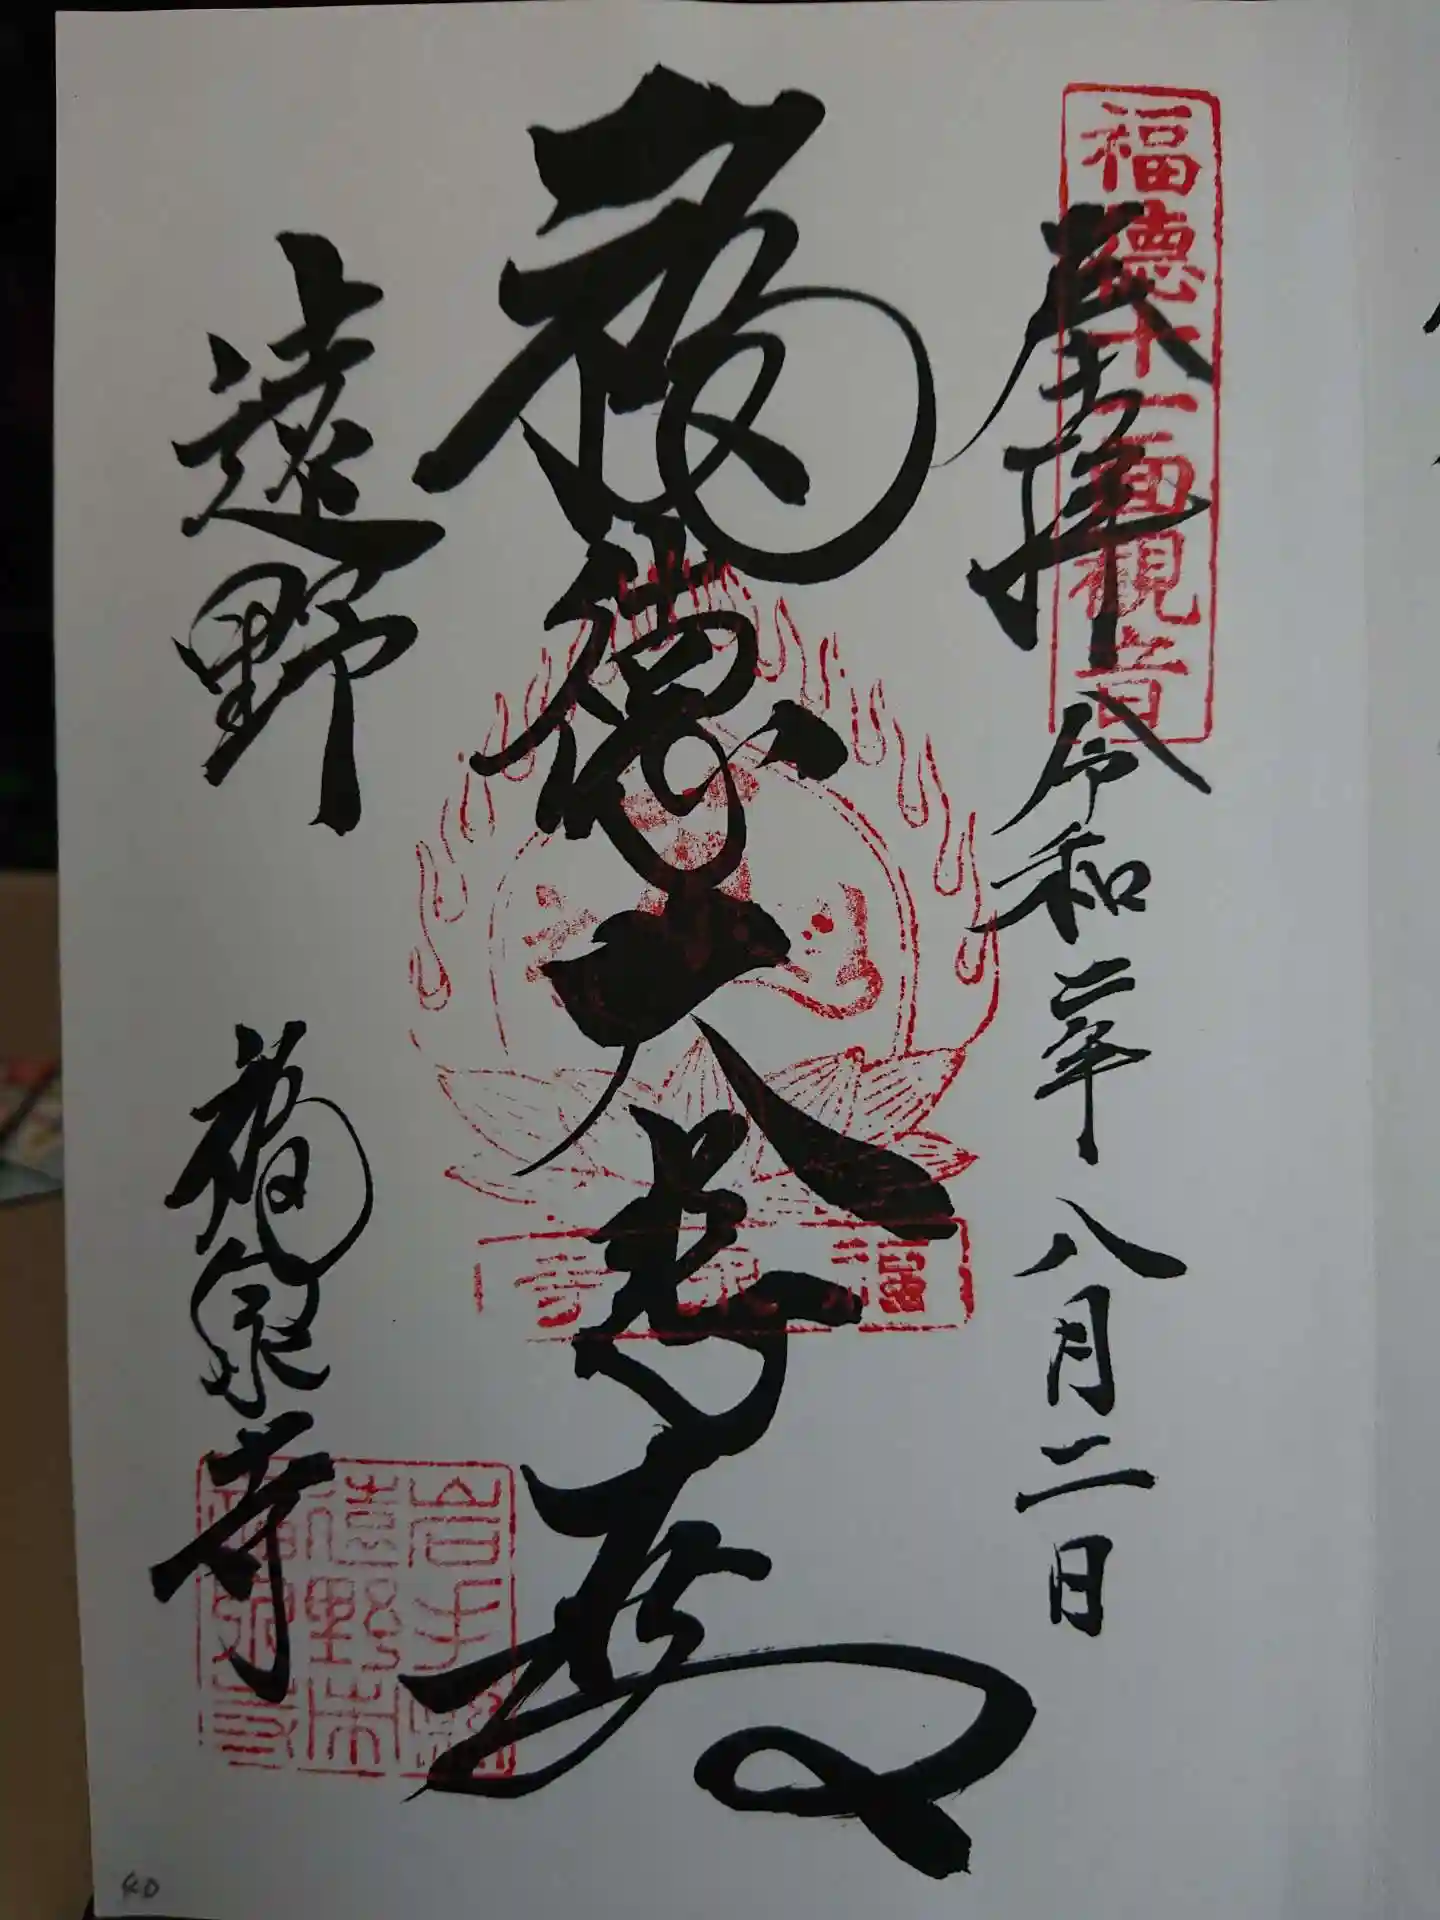 福徳十一面観音
奉拝 令和二年八月二日
福徳大悲殿
福泉寺
遠野 福泉寺
岩手縣
遠野市
福泉寺
40